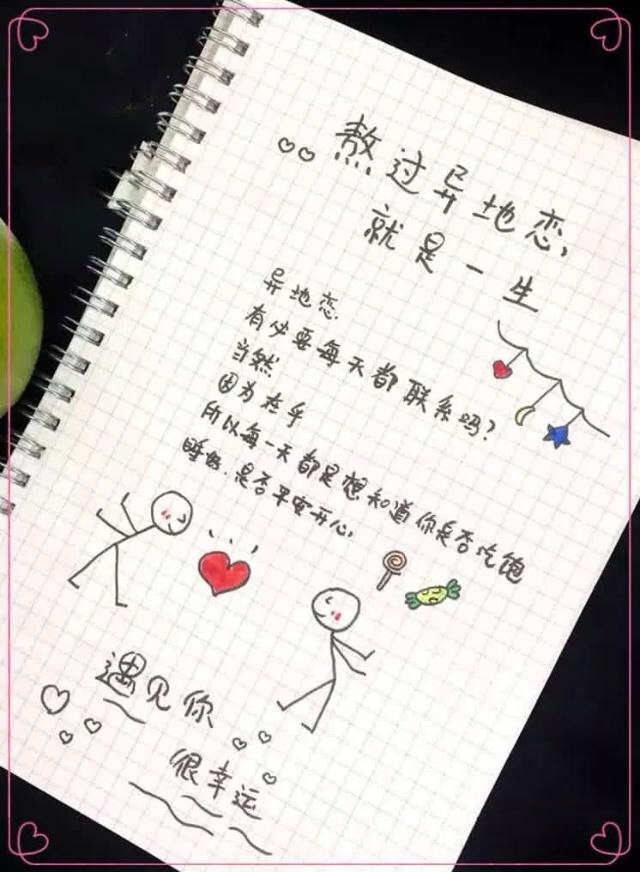 熬过异地恋,
就是一生
异地恋.
有必要每天都联系吗?
当然
因为在乎
所以每一天都是想知道你是否吃饱
睡好.是否平安开心.
遇见你
很幸运